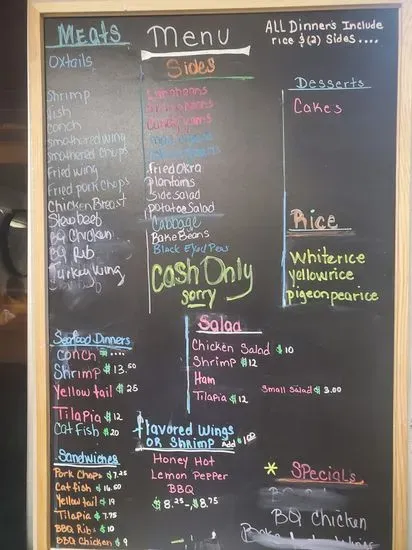 Meats
Oxtails
Shrimp
fish
conch
smothered wing
smothered chops
Fried wing
Fried pork chops
Chicken Breast
Stew beef
BQ Chicken
BQ Rib
Turkey wing
Menu
Sides
Lima beans
Candy yams
Fried Okra
Plantains
Side Salad
Potatoe Salad
Cabbage
Bake Beans
Black Eyed Peas
Cash Only
sorry
ALL Dinner's Include
rice & (2) Sides ....
Desserts
Cakes
Rice
White rice
yellow rice
pigeon pea rice
Seafood Dinners
Conch = ....
Shrimp $13.50
Yellow tail $25
Tilapia $12
Cat Fish $20
Salad
Chicken Salad $10
Shrimp $12
Ham
Tilapia $12
Small Salad $3.00
Flavored Wings
OR Shrimp Add $1.00
Honey Hot
Lemon Pepper
BBQ
$8.25-$8.75
Sandwiches
Pork Chops $7.25
Catfish $16.00
Yellow tail $19
Tilapia $7.75
BBQ Rib $10
BBQ Chicken $9
* Specials
BQ Chicken